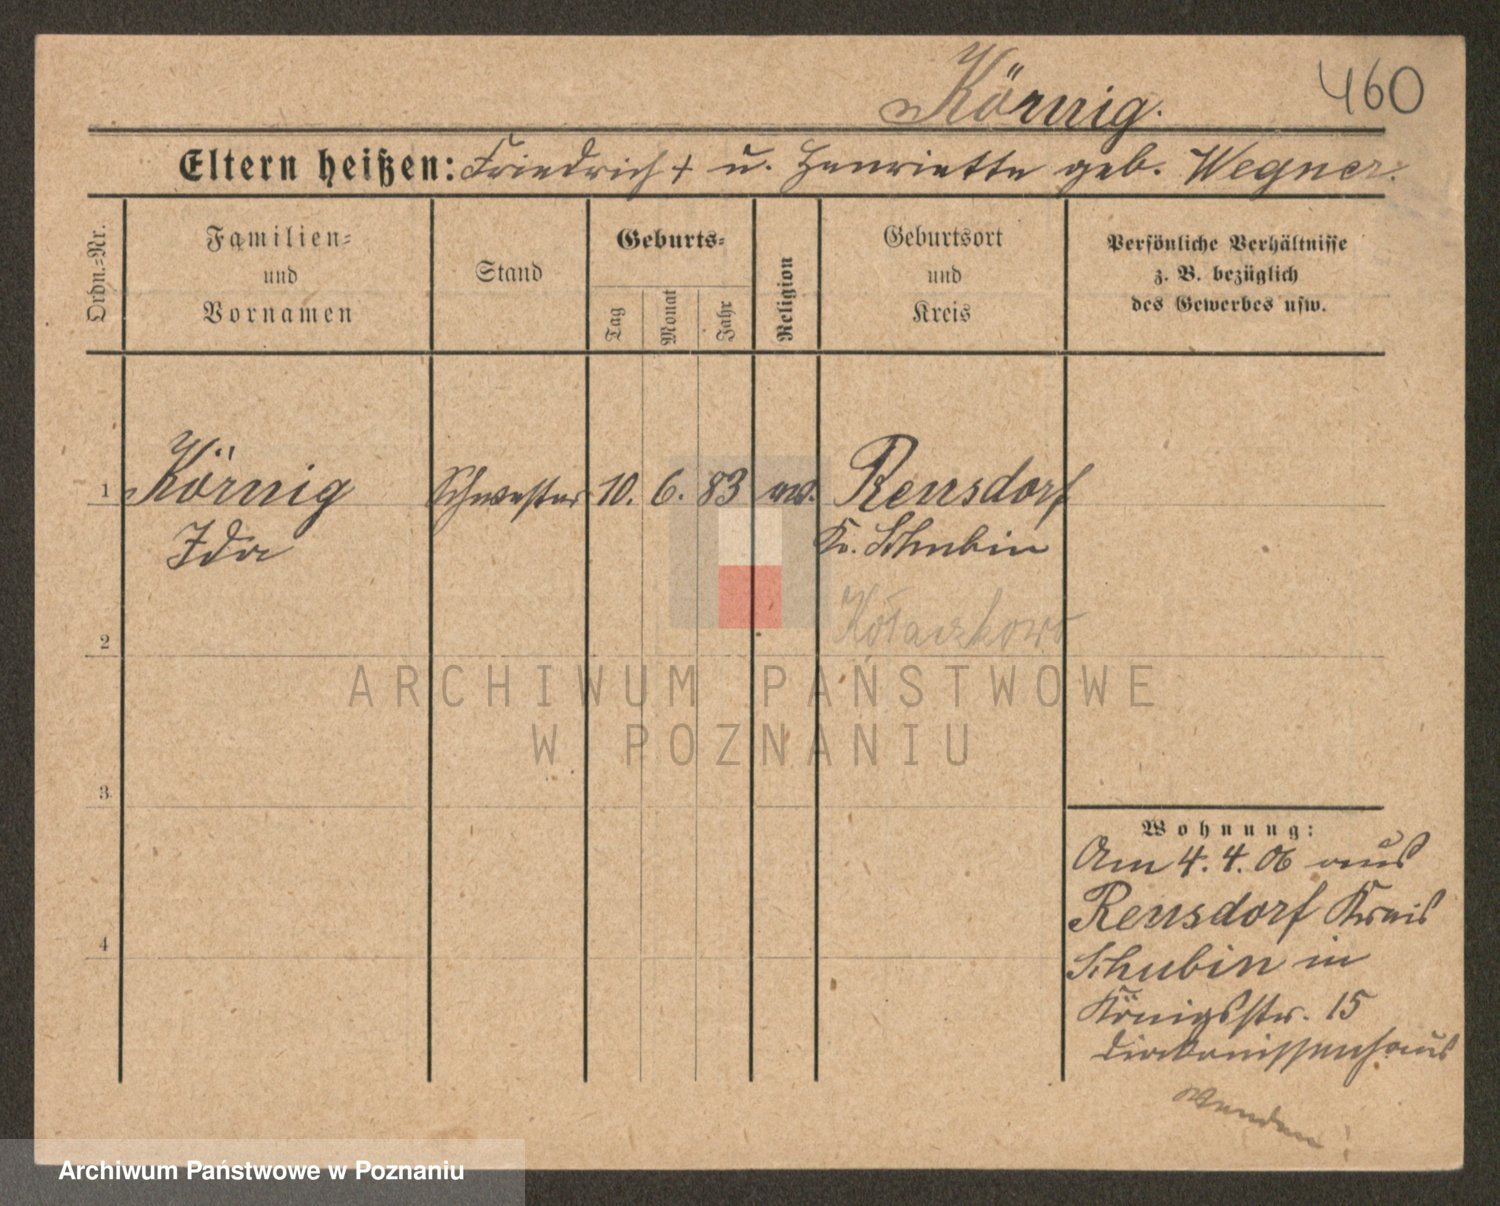 Körnig.
460
Eltern heißen: Friedrich + u. Henriette geb. Wegner.
Ordn.-Nr.
Familien-
und
Vornamen
Stand
Geburts-
Tag
Monat
Jahr
Religion
Geburtsort
und
Kreis
Persönliche Verhältnisse
z. B. bezüglich
des Gewerbes usw.
1 Körnig Schwester 10. 6. 83 ev. Rensdorf
Ida Kr. Schubin
Kołaczkowo
2
ARCHIWUM PAŃSTWOWE
W POZNANIU
3
Wohnung:
Am 4. 4. 06 aus
Rensdorf Kreis
4
Schubin in
Königsstr. 15
Diakonissenhaus
wenden!
Archiwum Państwowe w Poznaniu